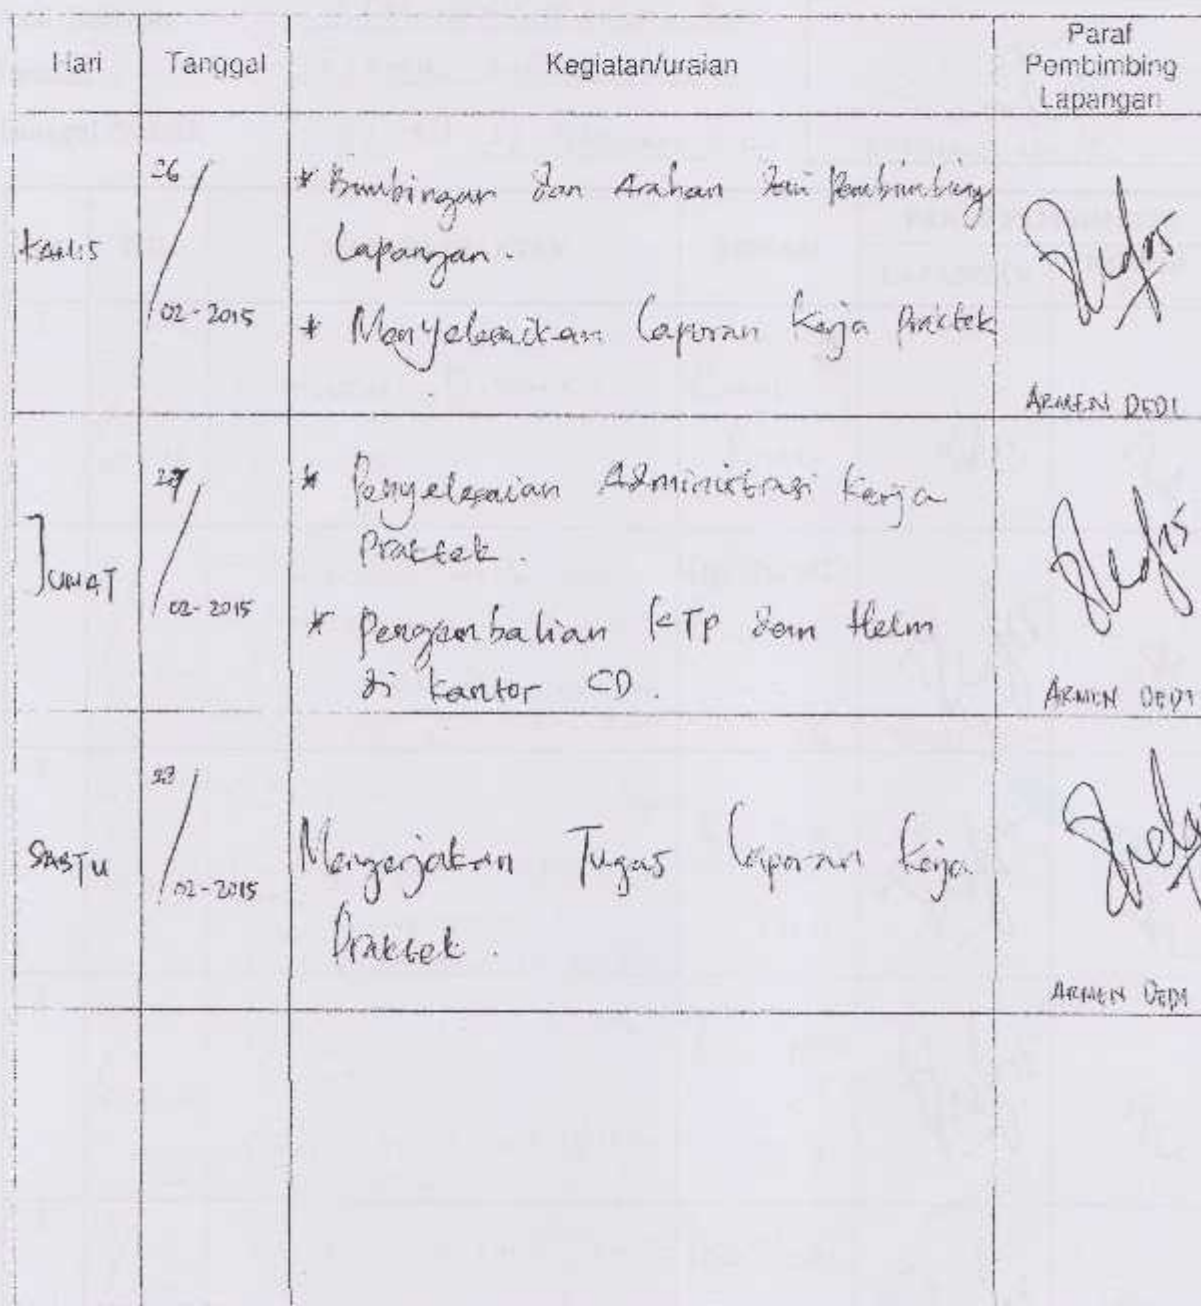 Hari Tanggal Kegiatan/uraian Paraf Pembimbing Lapangan
KAMIS 26/02-2015
* Bimbingan dan Arahan dari Pembimbing
Lapangan.
* Menyelesaikan Laporan Kerja Praktek
ARMEN DEDI
JUMAT 27/02-2015
* Penyelesaian Administrasi Kerja
Praktek.
* Pengembalian KTP dan Helm
di Kantor CD.
ARMEN DEDI
SABTU /02-2015
Mengerjakan Tugas Laporan Kerja
Praktek.
ARMEN DEDI